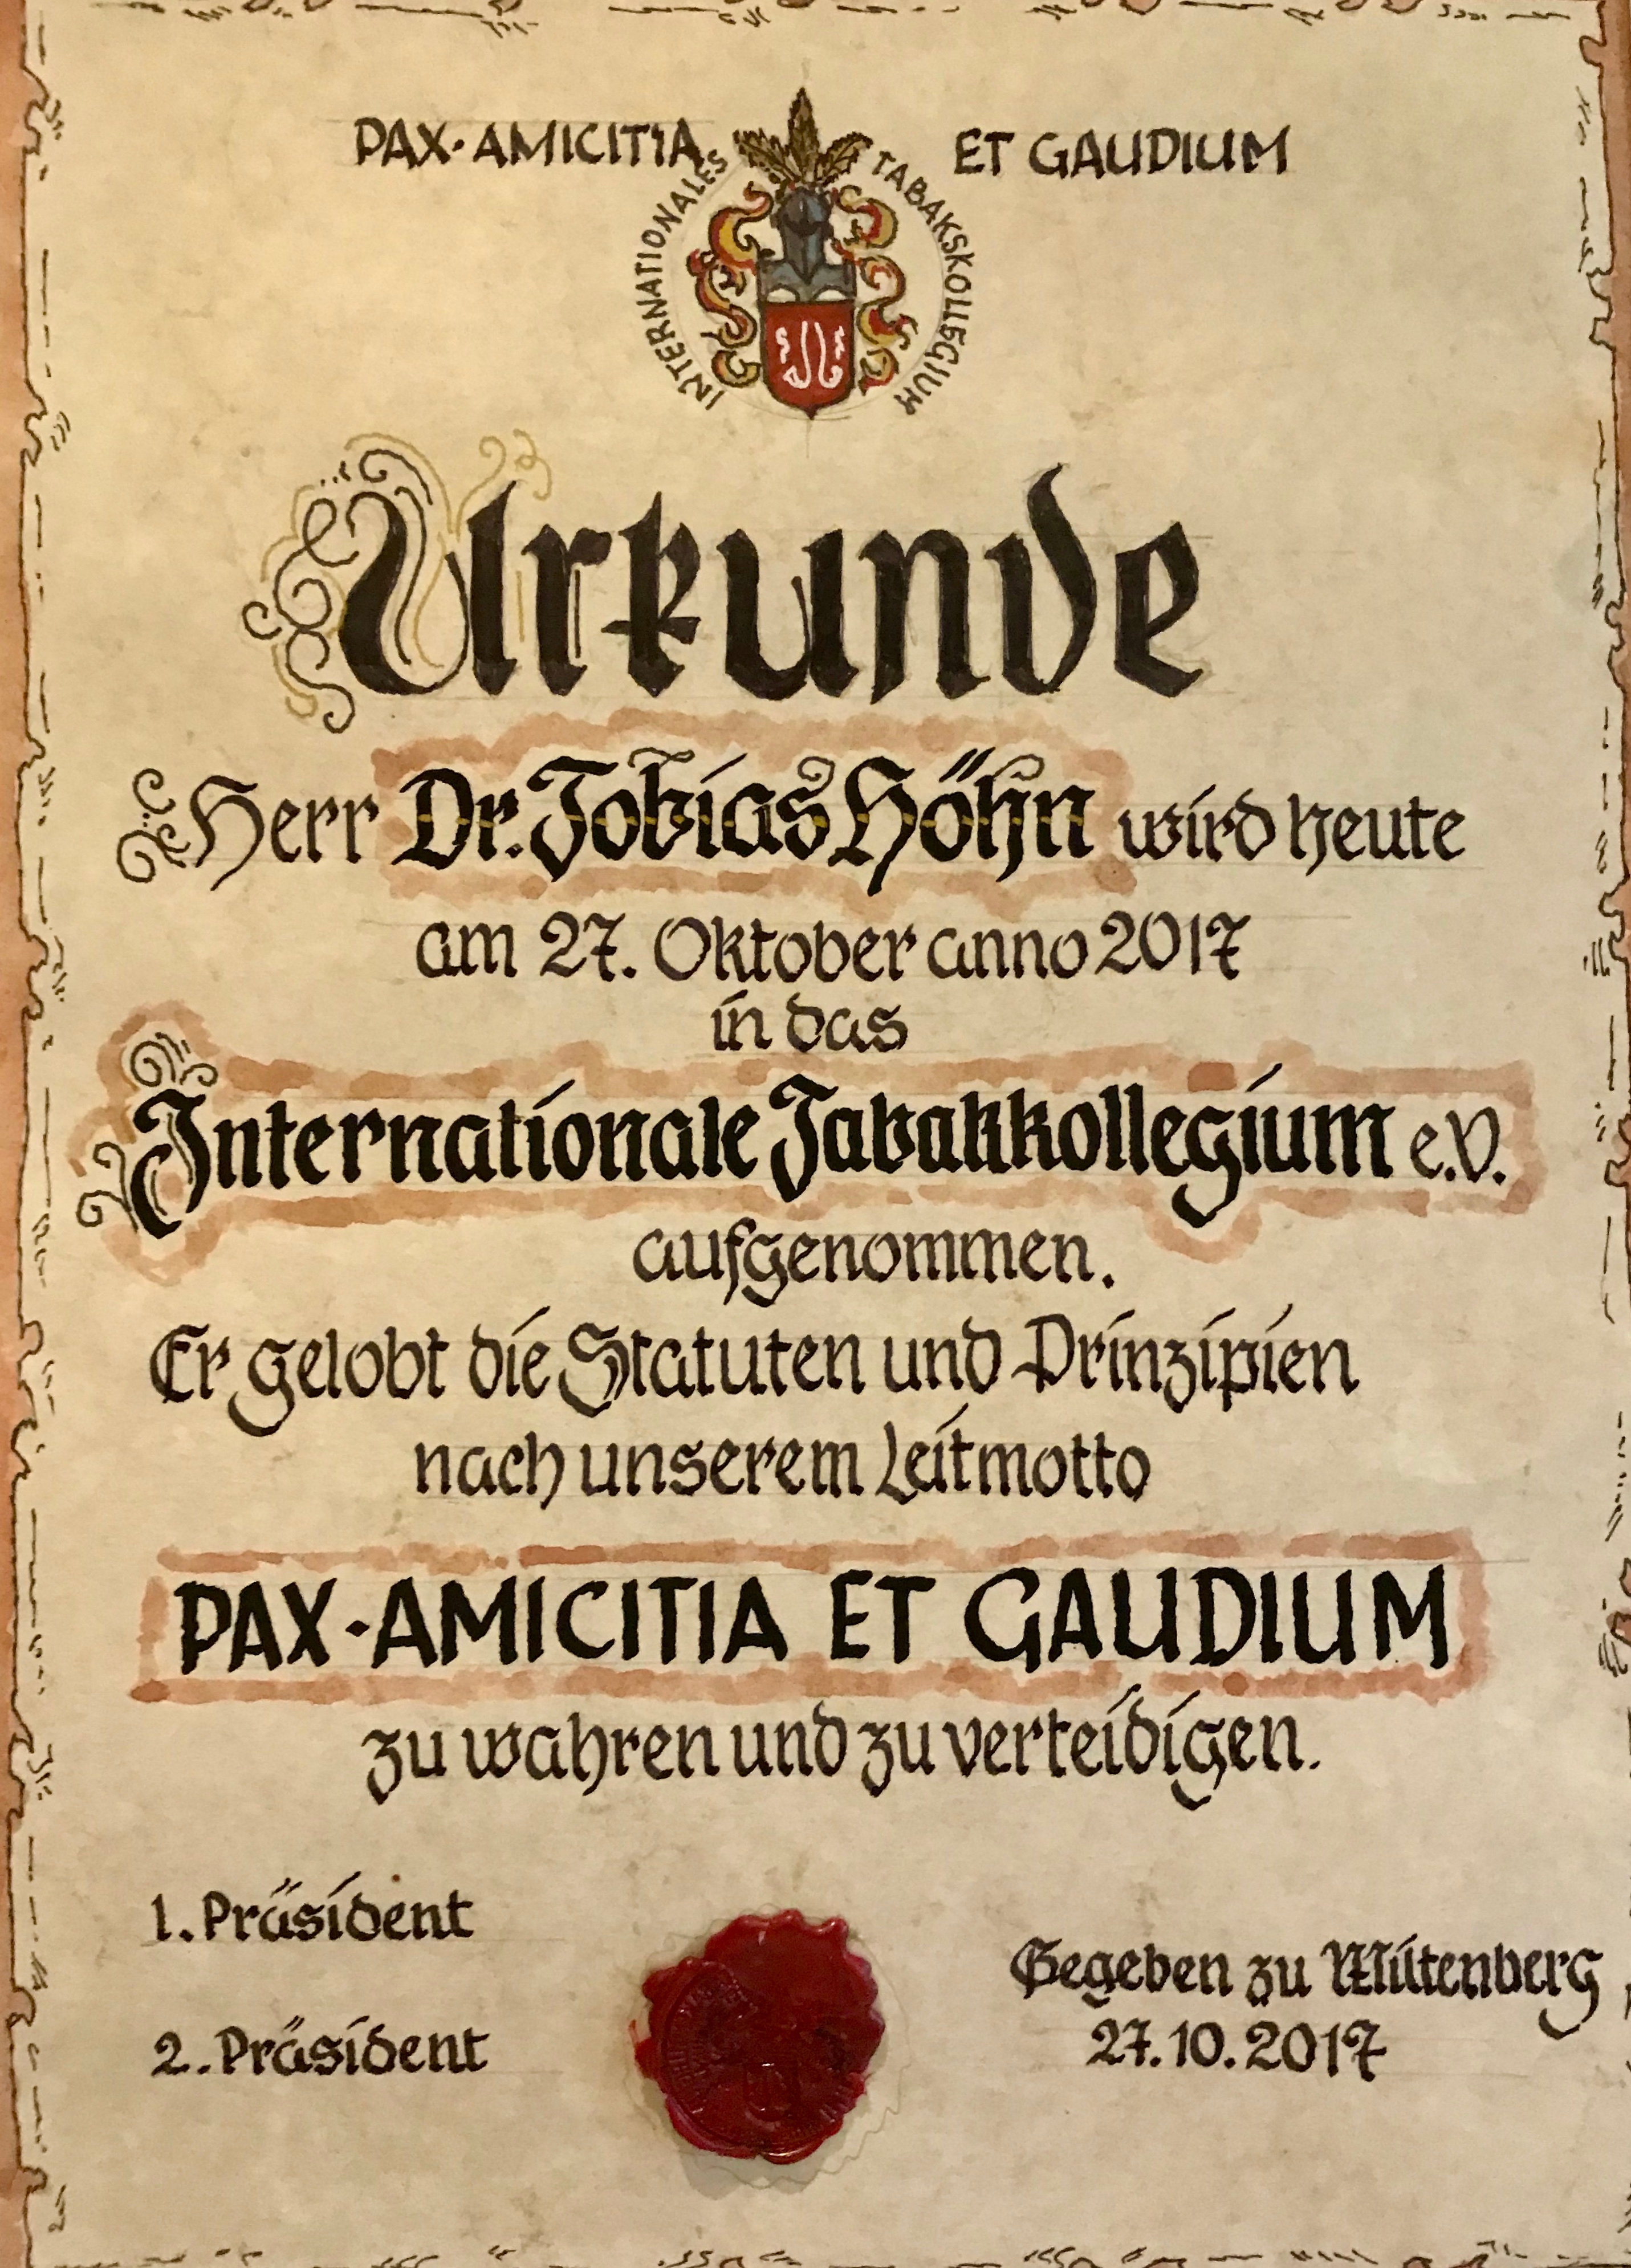 PAX·AMICITIA ET GAUDIUM
INTERNATIONALES TABAKSKOLLEGIUM
Urkunde
Herr Dr. Tobias Höhn wird heute
am 27. Oktober anno 2017
in das
Internationale Tabakkollegium e.V.
aufgenommen.
Er gelobt die Statuten und Prinzipien
nach unserem Leitmotto
PAX·AMICITIA ET GAUDIUM
zu wahren und zu verteidigen.
1. Präsident
2. Präsident
Gegeben zu Miltenberg
27.10.2017